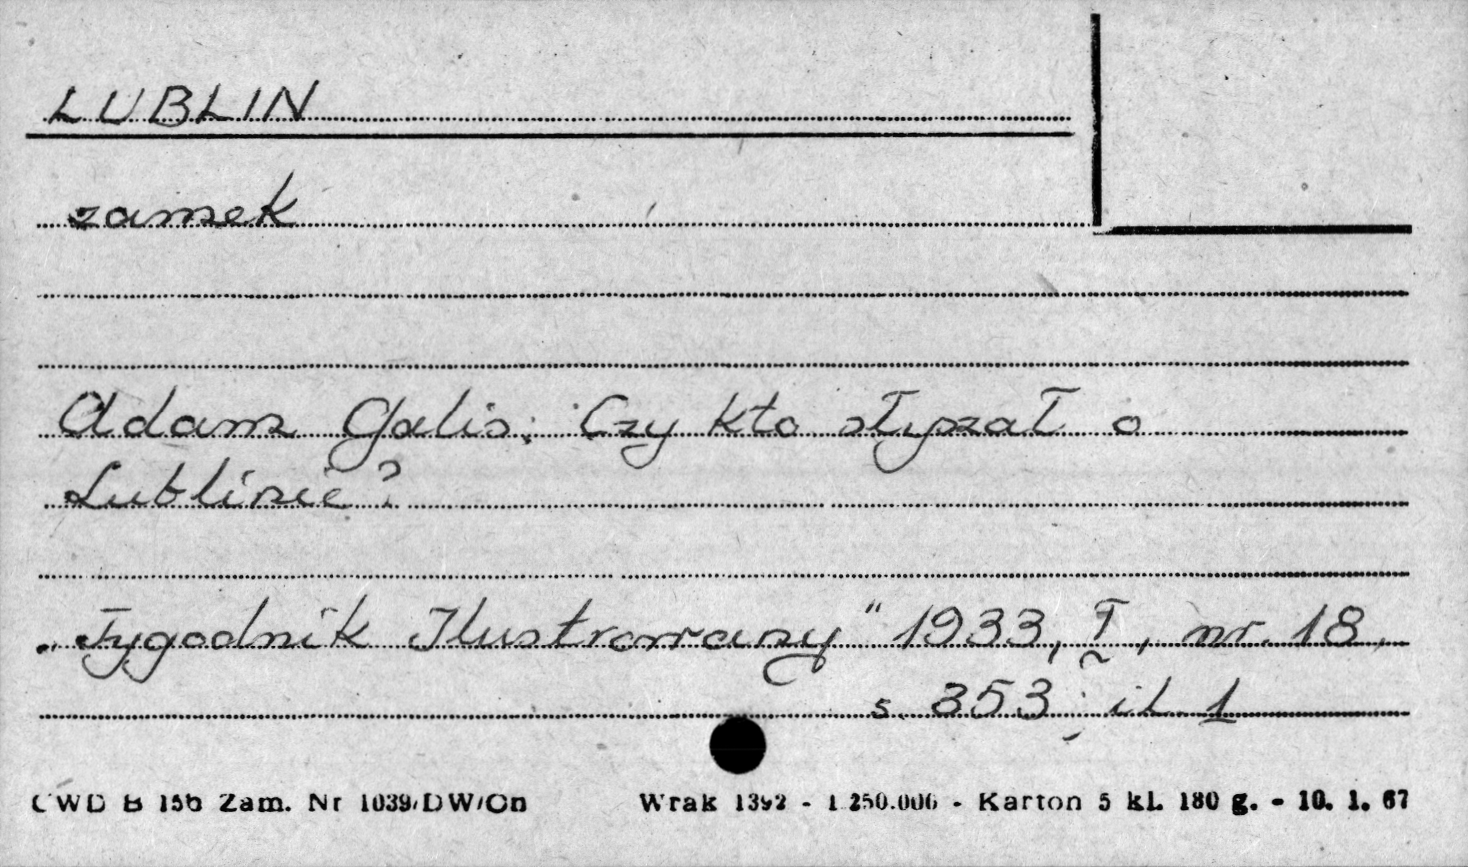 LUBLIN
zamek
Adam Galis: Czy kto słyszał o
Lublinie?
„Tygodnik Ilustrowany" 1933, I, nr. 18,
s. 353; il. 1
CWD B 156 Zam. Nr 1039/DW/On Wrak 1392 - 1.250.000 - Karton 5 kl. 180 g. - 10. 1. 67